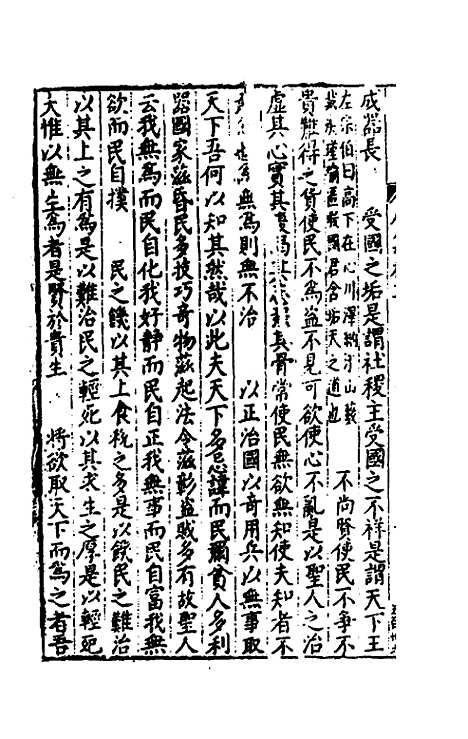 成器長　受國之垢是謂社稷王受國之不祥是謂天下王
左宗伯曰高下在心川澤納汙山藪
藏疾瑾瑜匿瑕國君含垢天之道也
不尚賢使民不爭不
貴難得之貨使民不為盜不見可欲使心不亂是以聖人之治
虛其心實其腹弱其志強其骨常使民無欲無知使夫知者不
為無為則無不治　以正治國以奇用兵以無事取
天下吾何以知其然哉以此夫天下多忌諱而民彌貧人多利
器國家滋昏民多技巧奇物滋起法令滋彰盜賊多有故聖人
云我無為而民自化我好靜而民自正我無事而民自富我無
欲而民自撲　民之饑以其上食稅之多是以饑民之難治
以其上之有為是以難治民之輕死以其求生之厚是以輕死
夫惟以無生為者是賢於貴生　將欲取天下而為之者吾